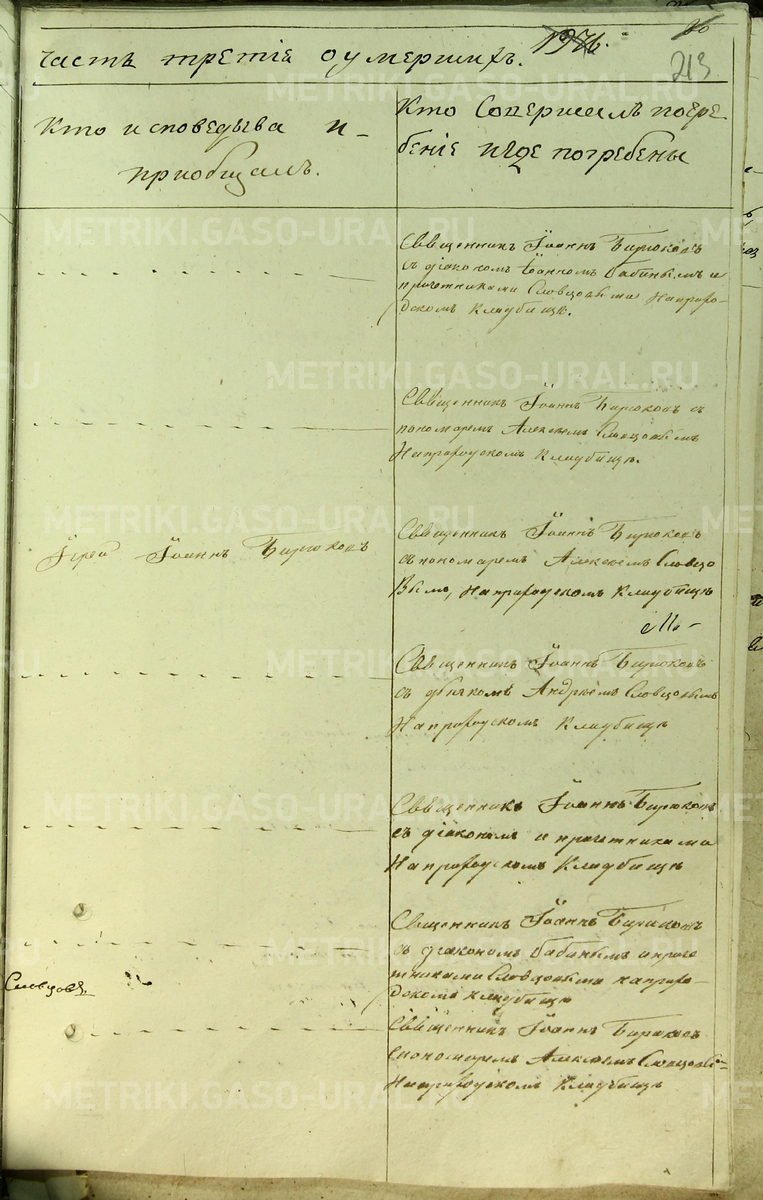 Часть третія оумершихъ.
213
Кто исповедыва и-
пріобщалъ.
Кто Совершалъ погре
беніе игде погребены
Священникъ Іоаннъ Бирюковъ
съ діакономъ Іоанномъ Бабинымъ и
причетниками Словцовыми Наприго-
дскомъ Кладбищѣ.
Священникъ Іоаннъ Бирюковъ съ
пономаремъ Алексѣемъ Словцовымъ
Наприготскомъ Кладбищѣ.
Іерей Іоаннъ Бирюковъ
Священникъ Іоаннъ Бирюковъ
съ пономаремъ Алексѣемъ Словцо
вымъ, Наприготскомъ Кладбищѣ
Священникъ Іоаннъ Бирюковъ
съ дьячкомъ Андрѣемъ Словцовымъ
Кладбищѣ
Священникъ Іоаннъ Бирюковъ
съ діакономъ и причетниками
Кладбищѣ
Священникъ Іоаннъ Бирюковъ
съ діакономъ Бабинымъ ипричe
тниками Словцовыми наприго-
дскомъ кладбищѣ
Словцовъ
Священникъ Іоаннъ Бирюковъ
спономаремъ Алексѣемъ
Кладбищѣ
METRIKI.GASO-URAL.RU